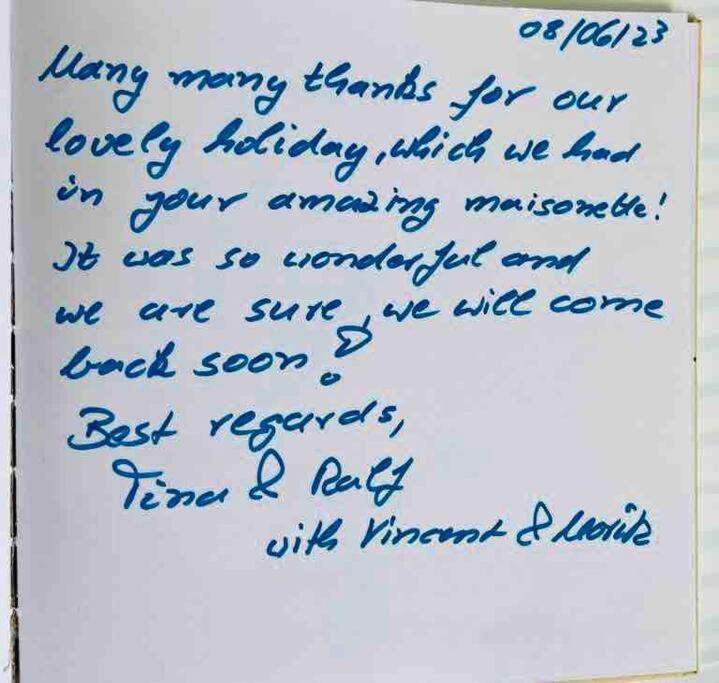 08/06/23
Many many thanks for our
lovely holiday, which we had
in your amazing maisonette!
It was so wonderful and
we are sure, we will come
back soon!
Best regards,
Tina & Ralf
with Vincent & Moritz